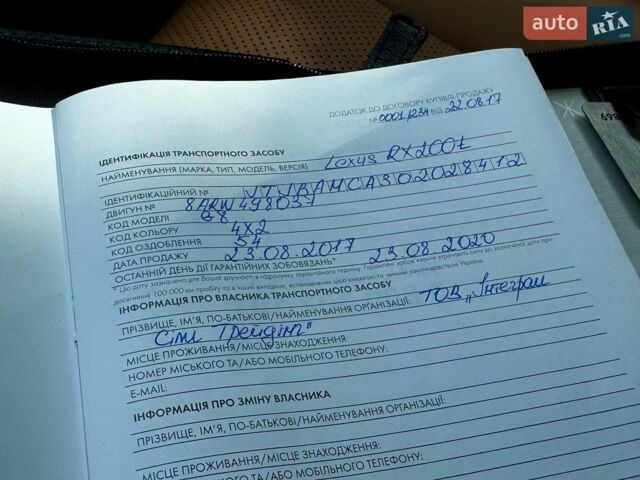 auto RIA.com
ДОДАТОК ДО ДОГОВОРУ КУПІВЛІ-ПРОДАЖУ
№ 0001/234 ВІД 22.08.17
ІДЕНТИФІКАЦІЯ ТРАНСПОРТНОГО ЗАСОБУ
НАЙМЕНУВАННЯ (МАРКА, ТИП, МОДЕЛЬ, ВЕРСІЯ) Lexus RX200t
ІДЕНТИФІКАЦІЙНИЙ № JTJBAMCA302028412
ДВИГУН № 8ARW498037
КОД МОДЕЛІ
КОД КОЛЬОРУ 4X2
КОД ОЗДОБЛЕННЯ 54
ДАТА ПРОДАЖУ 23.08.2017
ОСТАННІЙ ДЕНЬ ДІЇ ГАРАНТІЙНИХ ЗОБОВЯЗАНЬ* 23.08.2020
* Цю дату зазначено для Вашої зручності в підрахунку гарантійного терміну. Гарантійні зобов'язання втрачають силу до зазначеної дати при
досягненні 100 000 км пробігу та в інших випадках, встановлених цією книжкою та чинним законодавством України.
ІНФОРМАЦІЯ ПРО ВЛАСНИКА ТРАНСПОРТНОГО ЗАСОБУ
ПРІЗВИЩЕ, ІМ'Я, ПО-БАТЬКОВІ/НАЙМЕНУВАННЯ ОРГАНІЗАЦІЇ: ТОВ „Інтеграл
Сіті Трейдінг"
МІСЦЕ ПРОЖИВАННЯ/МІСЦЕ ЗНАХОДЖЕННЯ:
НОМЕР МІСЬКОГО ТА/АБО МОБІЛЬНОГО ТЕЛЕФОНУ:
E-MAIL:
ІНФОРМАЦІЯ ПРО ЗМІНУ ВЛАСНИКА
ПРІЗВИЩЕ, ІМ'Я, ПО-БАТЬКОВІ/НАЙМЕНУВАННЯ ОРГАНІЗАЦІЇ:
МІСЦЕ ПРОЖИВАННЯ/МІСЦЕ ЗНАХОДЖЕННЯ:
НОМЕР МІСЬКОГО ТА/АБО МОБІЛЬНОГО ТЕЛЕФОНУ: